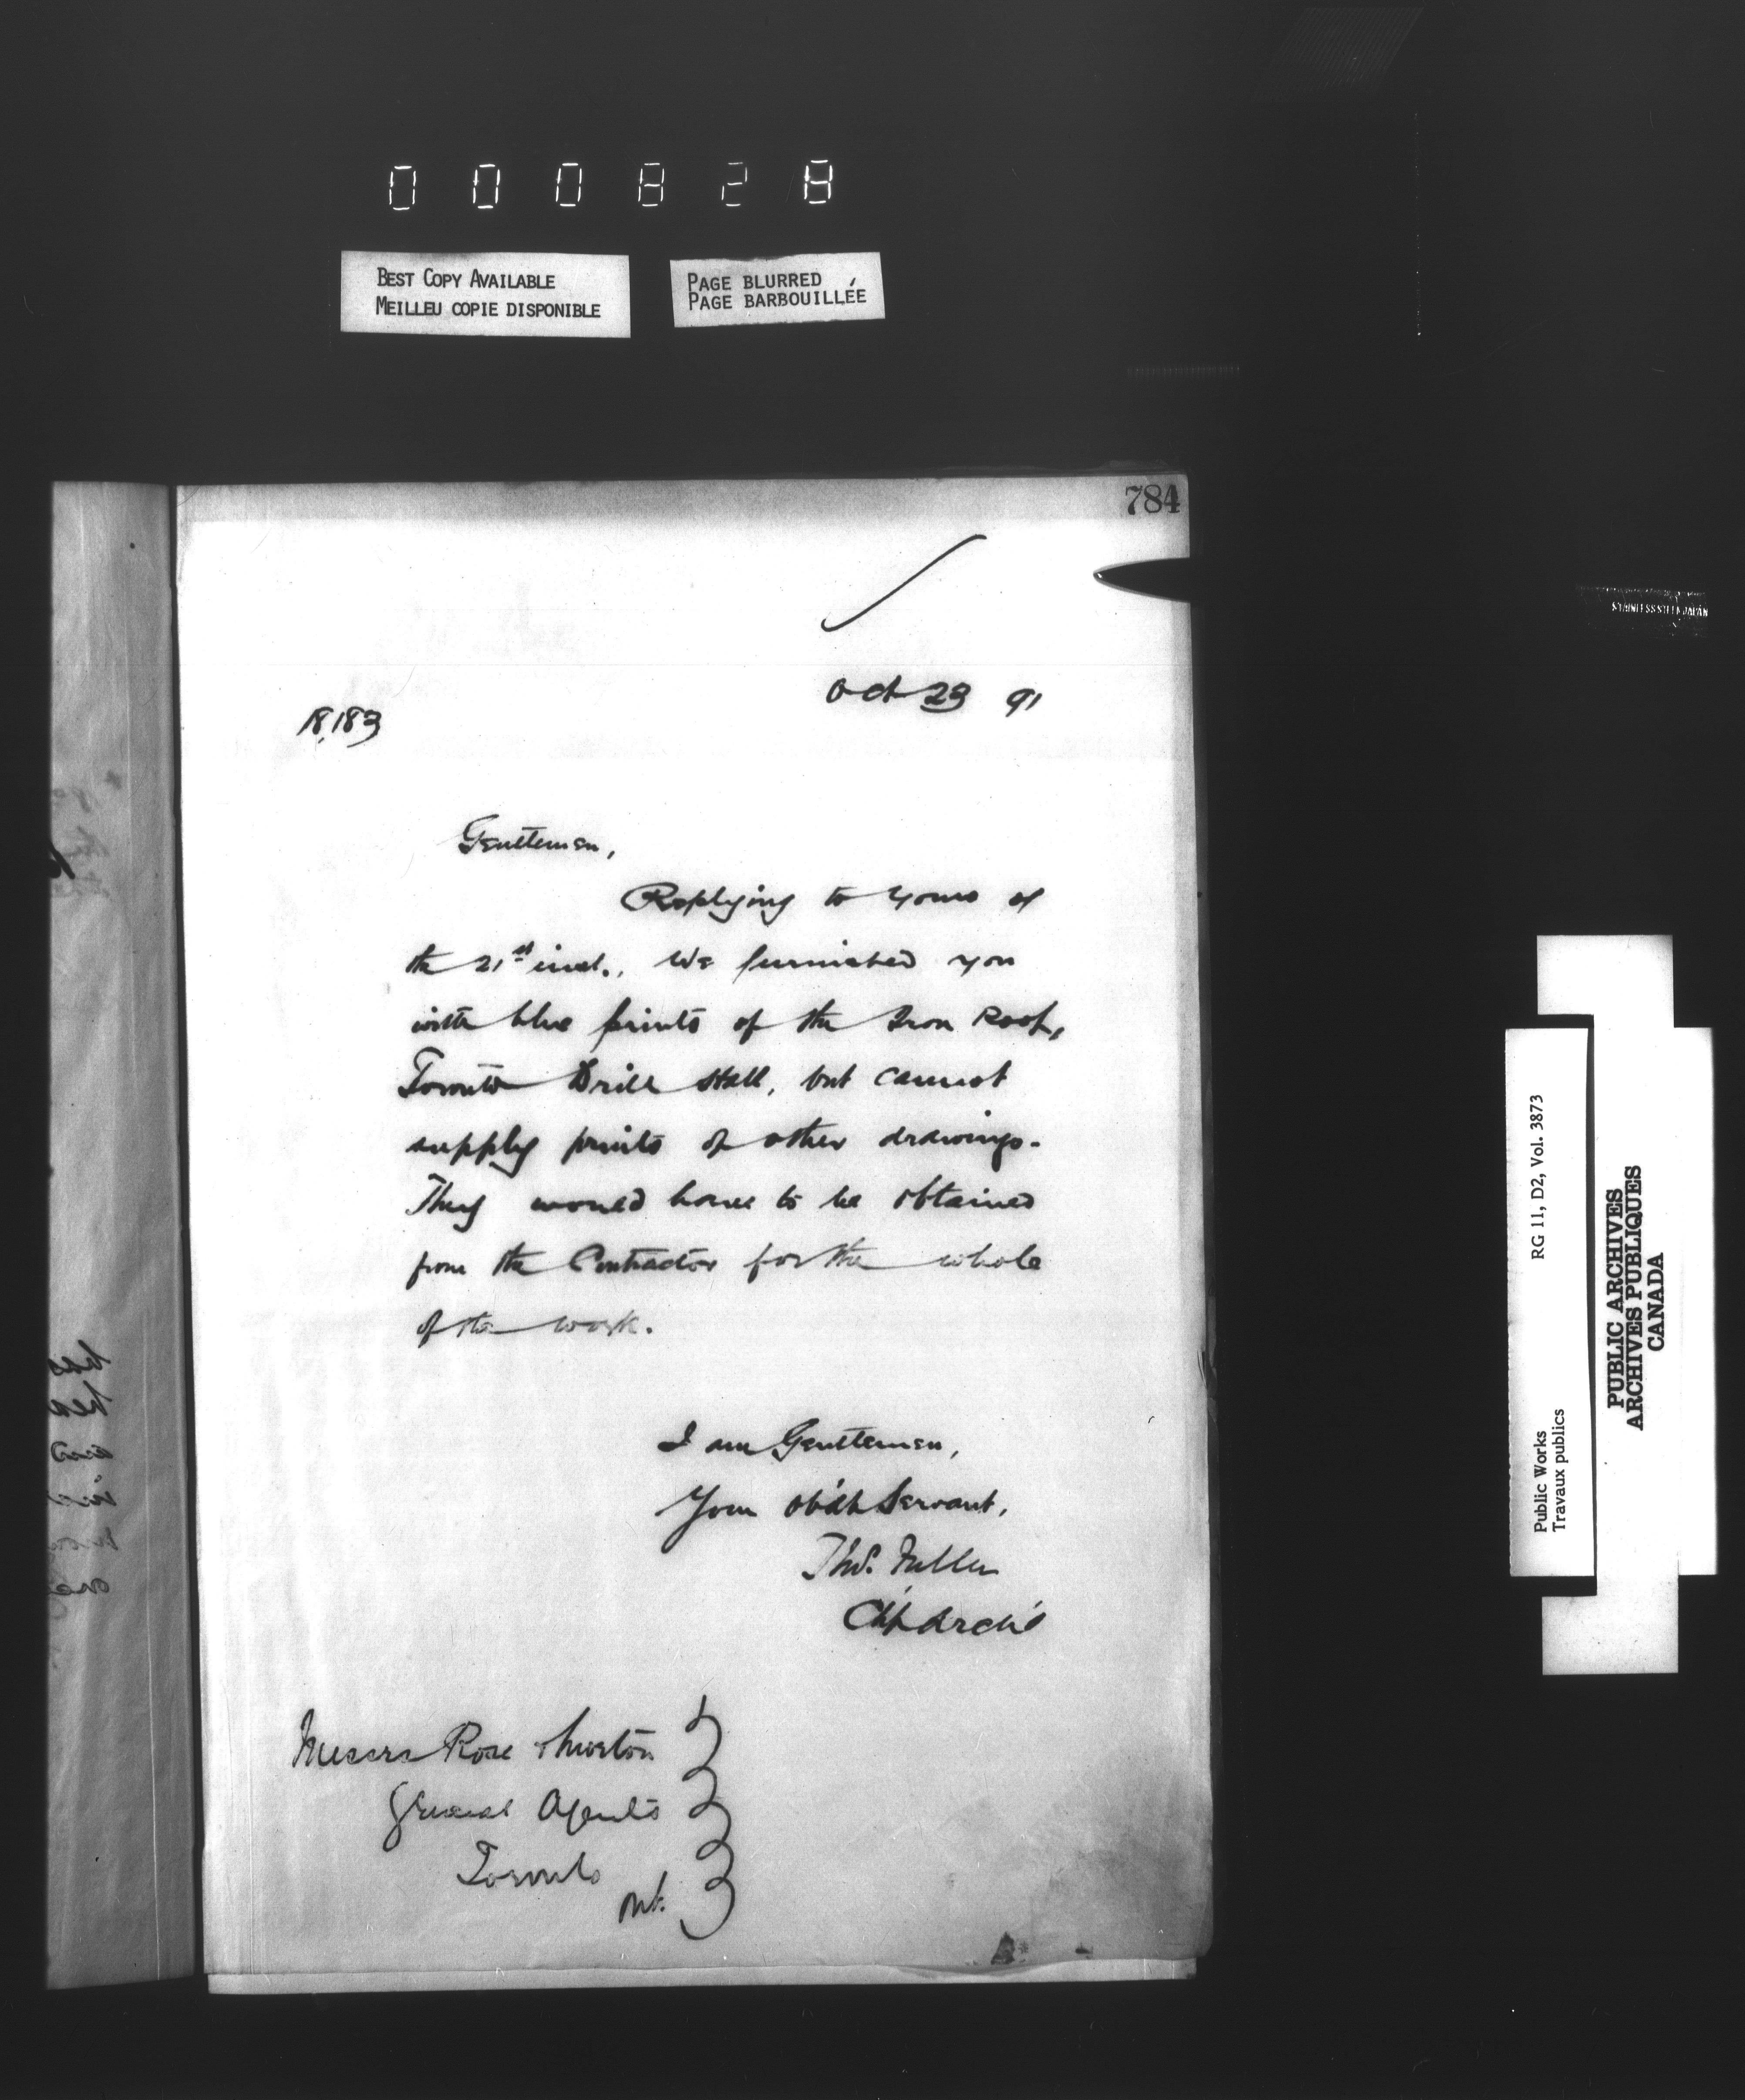 000828
BEST COPY AVAILABLE
MEILLEU COPIE DISPONIBLE
PAGE BLURRED
PAGE BARBOUILLÉE
784
Oct 23 91
18,183
Gentlemen,
Replying to yours of
the 21st inst., We furnished you
with blue prints of the Iron Roof,
Toronto Drill Hall, but cannot
supply prints of other drawings.
They would have to be obtained
from the Contractor for the whole
of the work.
I am Gentlemen,
Your ob'dt Servant,
Thos. Fuller
Ch'f Arch't
Messrs Rose
General Agents
Toronto
Ont.
STAINLESS STEEL JAPAN
RG 11, D2, Vol. 3873
Public Works
Travaux publics
PUBLIC ARCHIVES
ARCHIVES PUBLIQUES
CANADA